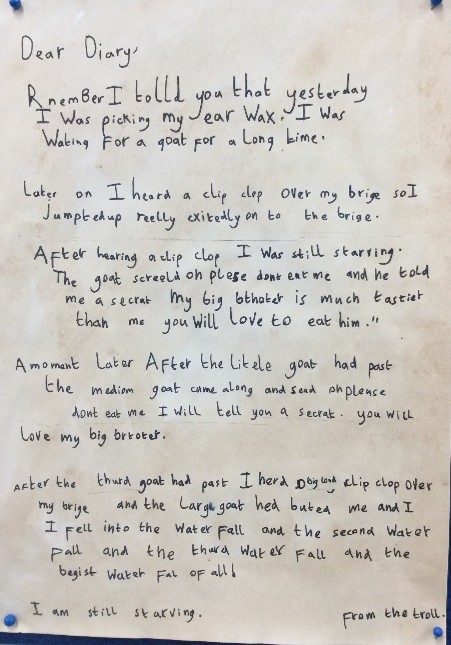 Dear Diary,
RnemBer I tolld you that yesterday
I Was picking my ear wax. I Was
Wating for a goat for a long time.
Later on I heard a clip clop over my brige so I
Jumptedup reelly exitedly on to the brige.
After hearing a clip clop I Was still starving.
The goat screeld oh plese dont eat me and he told
me a secrat my big bthoter is much tastier
than me you Will Love to eat him."
A moment Later After the litele goat had past
the mediom goat came along and sead oh please
dont eat me I Will tell you a secrat. you will
Love my big brroter.
After the thurd goat had past I herd big loud clip clop over
my brige and the Large goat hed buted me and I
I fell into the Water fall and the second Water
fall and the thurd Water Fall and the
begist Water Fal of all!
I am still starving.
From the troll.